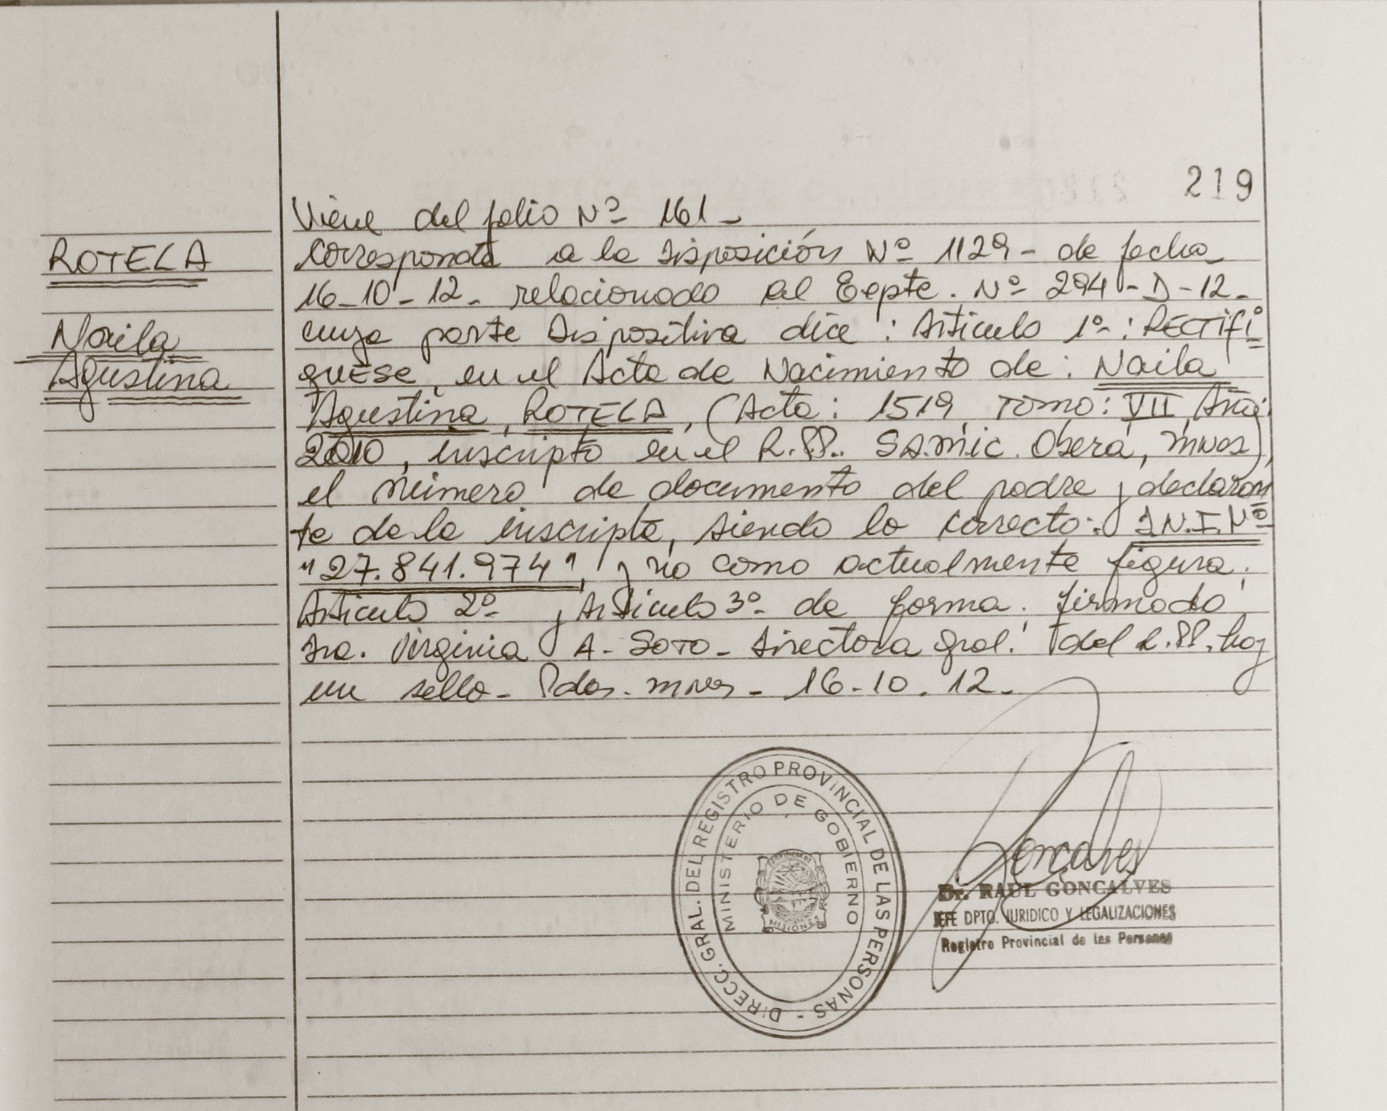 219
Viene del folio Nº 161-
ROTELA
Corresponde a la Disposición Nº 1129- de fecha
16-10-12- relacionado al Expte. Nº 294-D-12-
Naila
cuya parte Dispositiva dice: Artículo 1º: RECTIFI
Agustina
QUESE, en el Acta de Nacimiento de: Naila
Agustina, ROTELA, (Acta: 1519 Tomo: VII Año:
2010, inscripto en el R.PP. SAMIC. Oberá, Mnes),
el número de documento del padre y declaran
te de la inscripta, siendo lo correcto: D.N.I. Nº
"27.841.974", y no como actualmente figura.
Artículo 2º y Artículo 3º de forma. firmado
Dra. Virginia A- SOTO- Directora Gral. del R.PP. hay
un sello- Pdas. Mnes- 16-10.12-
DIRECC. GRAL. DEL REGISTRO PROVINCIAL DE LAS PERSONAS -
MINISTERIO DE GOBIERNO
MISIONES
Goncalves
Dr. RAUL GONCALVES
JEFE DPTO. JURIDICO Y LEGALIZACIONES
Registro Provincial de las Personas